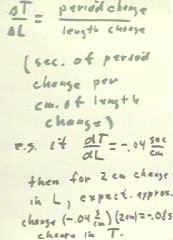 ΔT/ΔL = period change/length change
(sec. of period
change per
cm. of length
change)
e.g. if dT/dL = -.04 sec/cm
then for 2 cm change
in L, expect approx.
change (-.04 s/cm)(2cm) = -.08s
change in T.